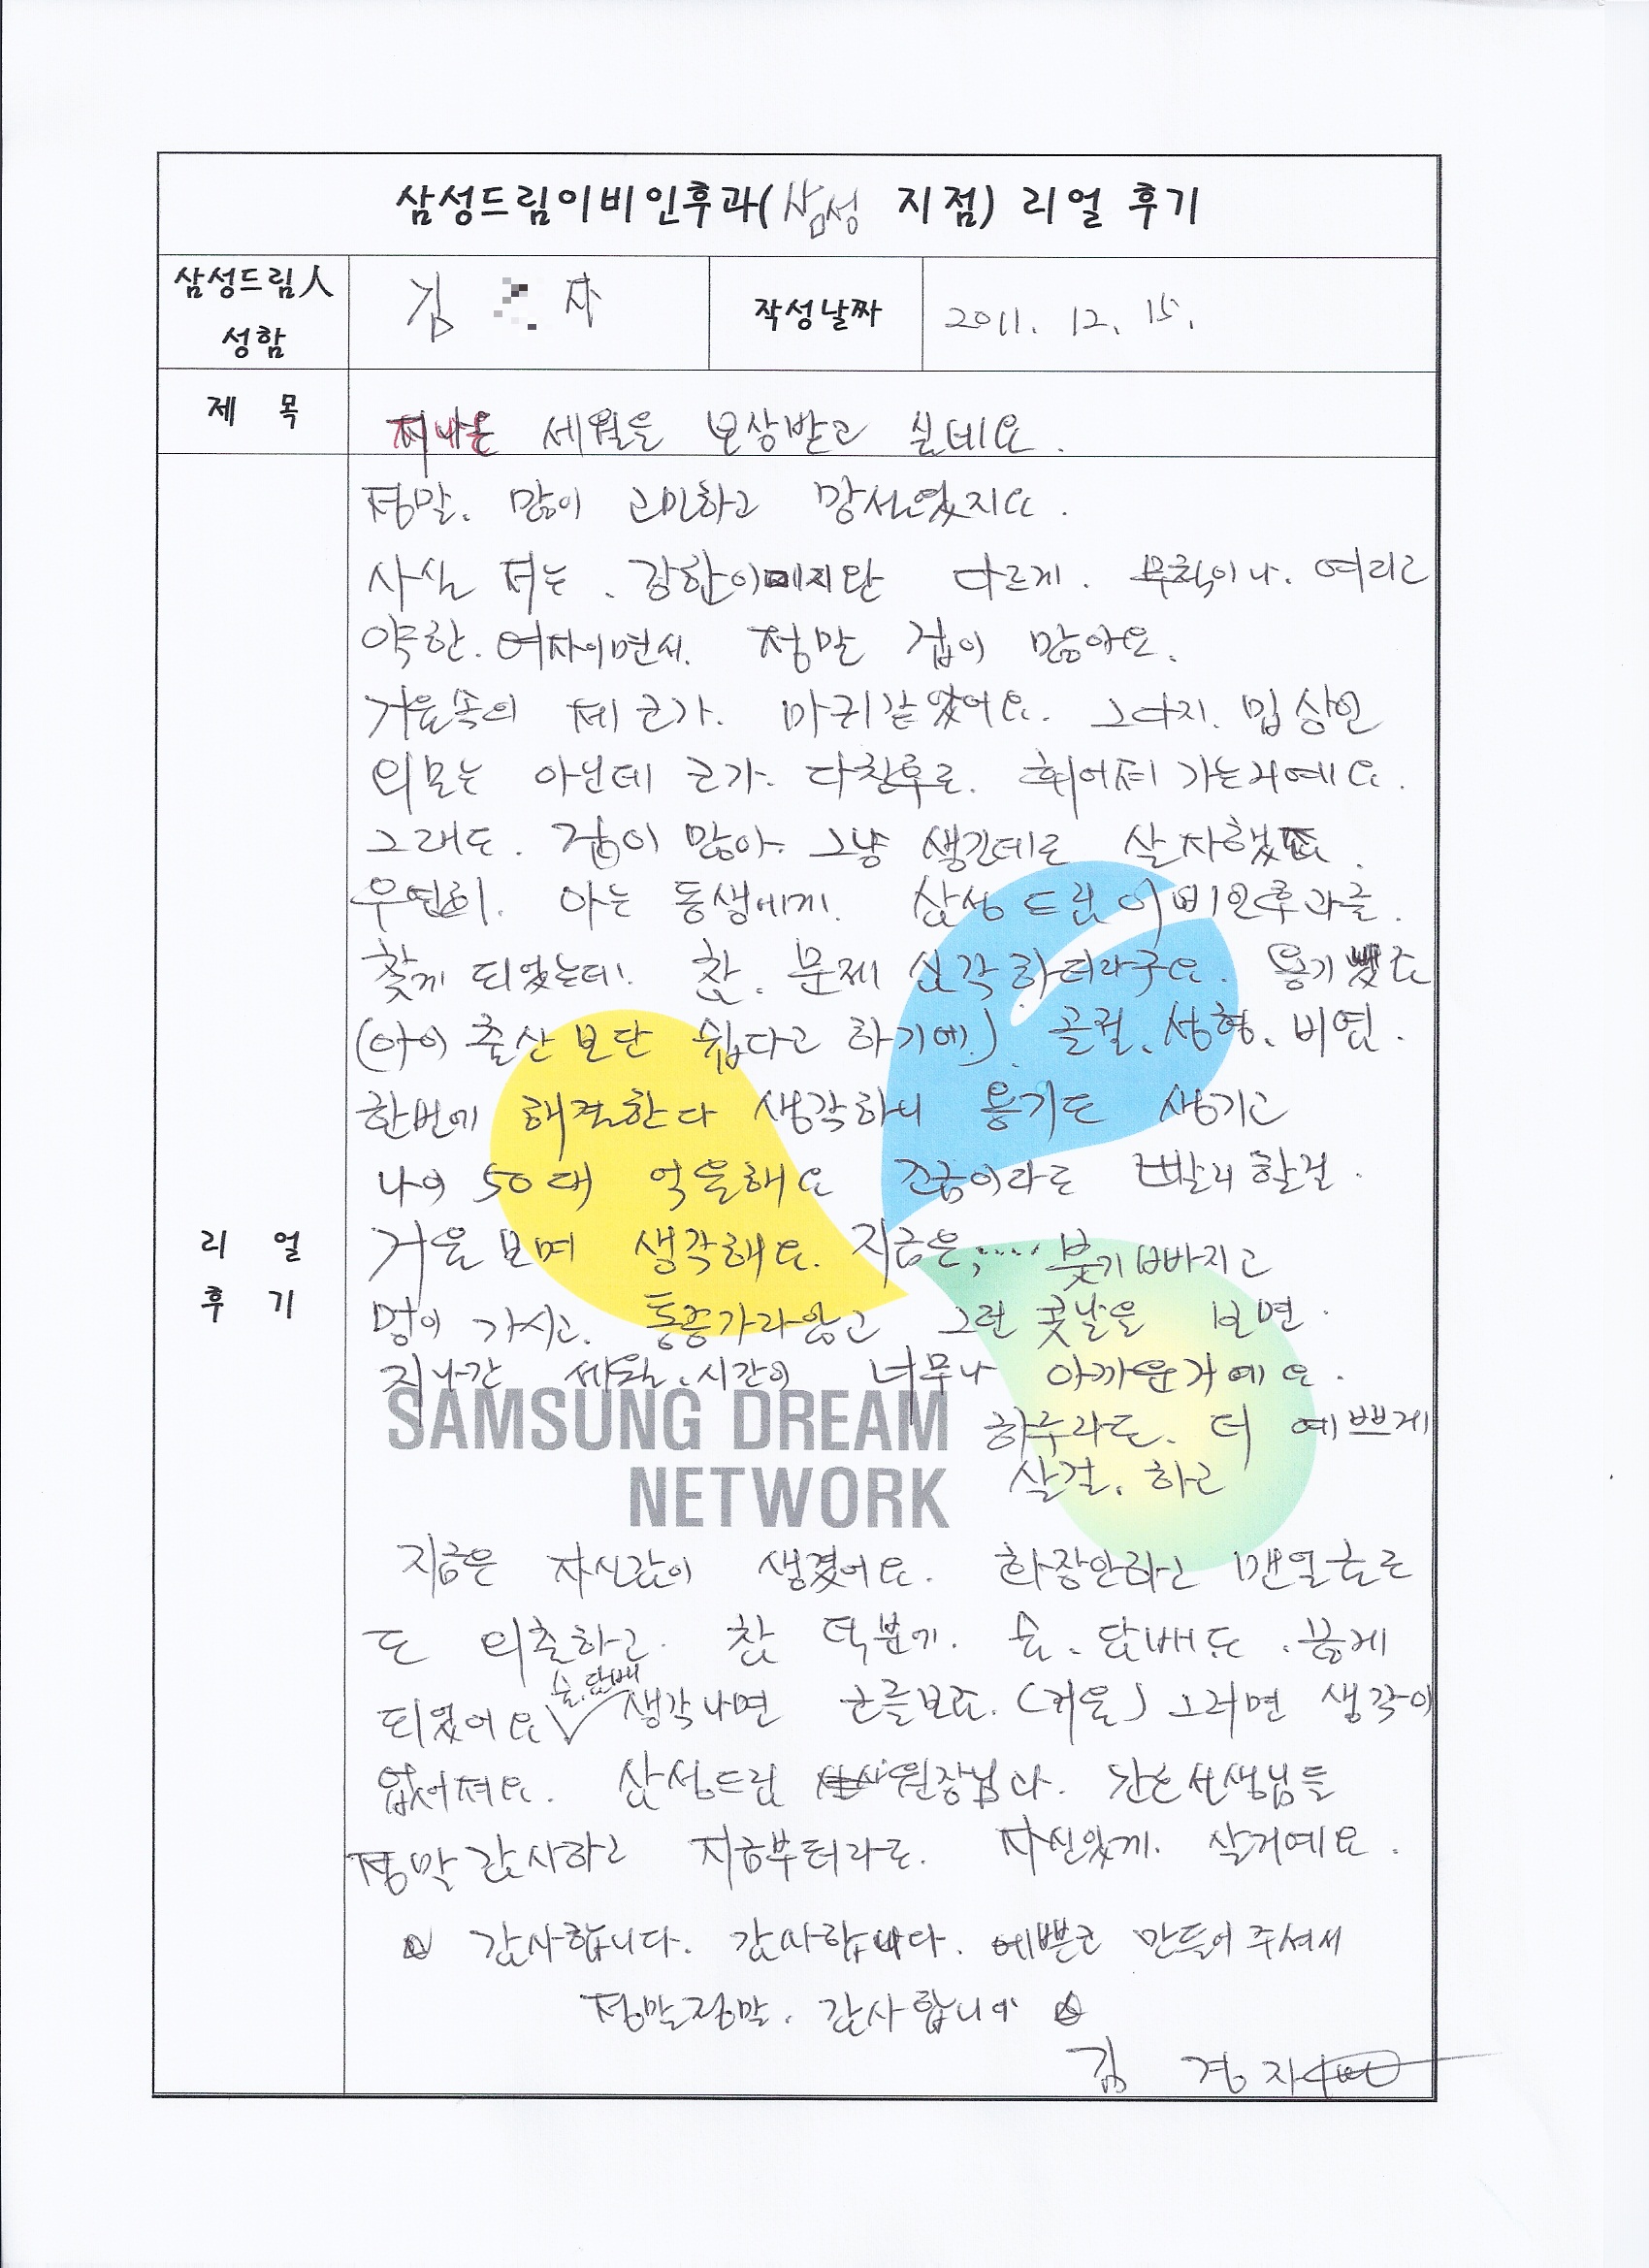 삼성드림이비인후과(삼성 지점) 리얼 후기
삼성드림人 성함
김 자
작성날짜
2011. 12. 15.
제 목
지나온 세월을 보상받고 싶데요.
리 얼 후 기
정말. 많이 고민하고 망서렸지요.
사실 저는. 강한이미지완 다르게. 무척이나. 여리고
약한. 여자이면서. 정말 겁이 많아요.
거울속의 제 코가. 마귀같았어요. 그다지. 밉상인
외모는 아닌데 코가. 다친후로. 휘어져 가는거예요.
그래도. 겁이 많아. 그냥 생긴데로 살자했죠.
우연히. 아는 동생에게. 삼성드림이비인후과를.
찾게 되었는데! 참. 문제 심각하더라구요. 용기냈죠
(아이 출산보단 쉽다고 하기에.) 골절. 성형. 비염.
한번에 해결한다 생각하니 용기도 생기고
나의 50대 억울해요 조금이라도 빨리할걸.
거울보며 생각해요. 지금은;.... 붓기빠지고
멍이 가시고. 통증가라않고 그런 콧날을 보면.
지나간 세월.시간이 너무나 아까운거예요.
하루라도. 더 예쁘게
살걸. 하고
지금은 자신감이 생겼어요. 화장안하고 맨얼굴로
도 외출하고. 참 덕분에. 술.담배도.끊게
되었어요 술.담배 생각나면 코를보죠. (거울) 그러면 생각이
없어져요. 삼성드림 원장님과. 간호선생님들
정말감사하고 지금부터라도. 자신있게. 살거예요.
☆ 감사합니다. 감사합니다. 예쁜코 만들어주셔서
정말정말. 감사합니다 ☆
김 경 자
SAMSUNG DREAM
NETWORK